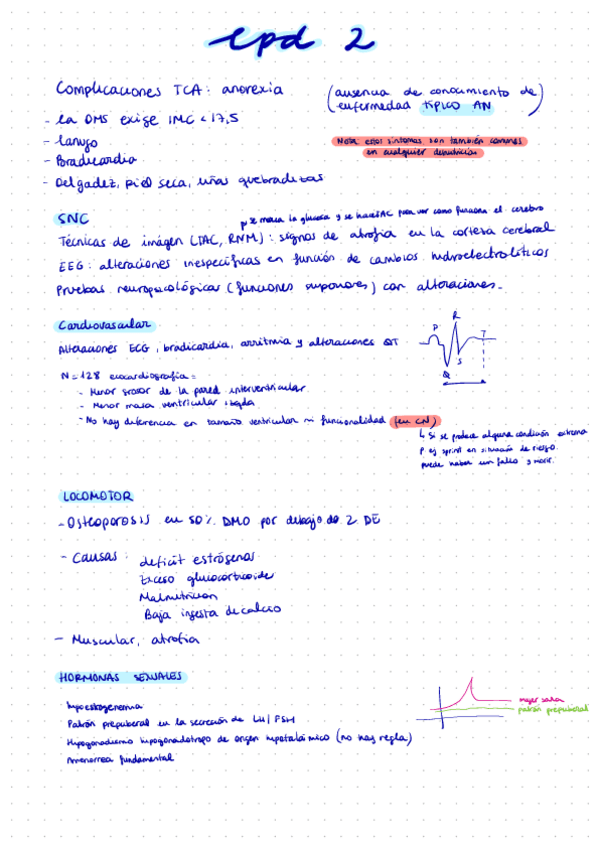 epd 2
Complicaciones TCA: anorexia
(ausencia de conocimiento de enfermedad típico AN)
- La OMS exige IMC < 17,5
- Lanugo
- Bradicardia
- Delgadez, piel seca, uñas quebradizas
Nota estos síntomas son también comunes
en cualquier desnutrición
SNC
se marca la glucosa y se hace TAC para ver como funciona el cerebro
Técnicas de imágen (TAC, RNM): signos de atrofia en la corteza cerebral
EEG: alteraciones inespecíficas en función de cambios hidroelectrolíticos
Pruebas neuropsicológicas (funciones superiores) con alteraciones.
Cardiovascular
Alteraciones ECG, bradicardia, arritmia y alteraciones QT
P R T
Q S
N=128 ecocardiografía =
- Menor grosor de la pared interventricular
- Menor masa ventricular izqda
- No hay diferencia en tamaño ventricular ni funcionalidad (en CN)
↳ Si se produce alguna condición extrema
P ej sprint en situación de riesgo.
puede haber un fallo y morir.
LOCOMOTOR
- Osteoporosis en 50% DMO por debajo de 2 DE
- Causas: deficit estrógenos
Exceso glucocorticoide
Malnutricion
Baja ingesta de calcio
- Muscular, atrofia
HORMONAS SEXUALES
hipoestrogenemia
Patrón prepuberal en la secreción de LH/FSH
Hipogonadismo hipogonadotropo de origen hipotalámico (no hay regla)
Amenorrea fundamental
mujer sana
patrón prepuberal